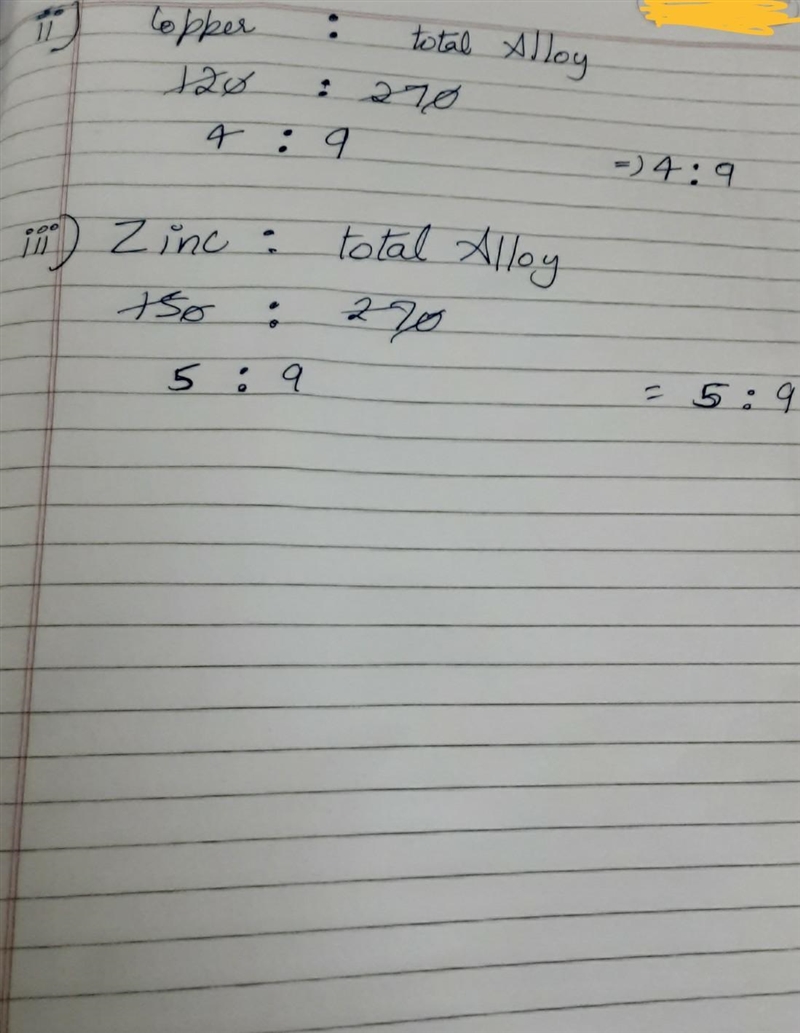 ii) Copper : total Alloy
120 : 270
4 : 9
=) 4 : 9
iii) Zinc : total Alloy
150 : 270
5 : 9 = 5 : 9